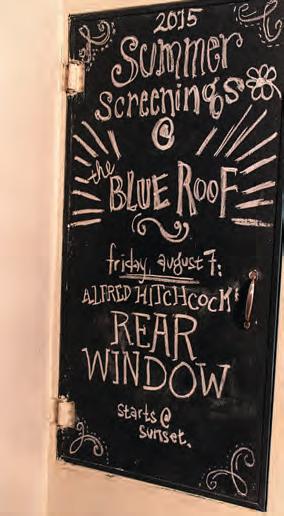 2015
Summer
Screenings
@
the
BLUE ROOF
friday, august 7:
ALFRED HITCHCOCK'S
REAR
WINDOW
starts @
sunset.